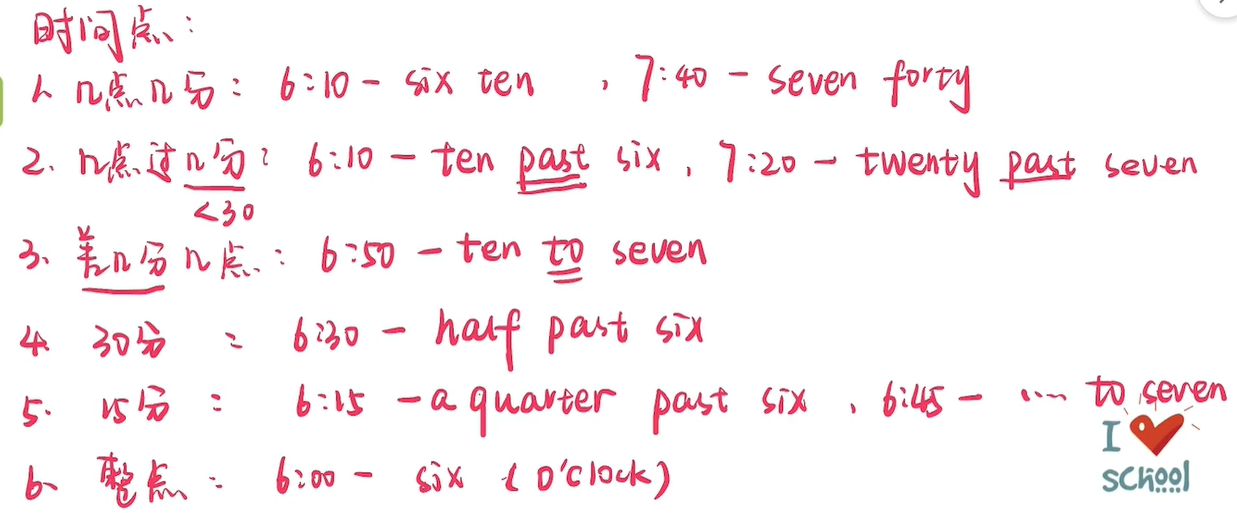 时间点:
1、几点几分: 6:10 - six ten , 7:40 - seven forty
2、几点过几分: 6:10 - ten past six, 7:20 - twenty past seven
<30
3、差几分几点: 6:50 - ten to seven
4、30分: 6:30 - half past six
5、15分: 6:15 - a quarter past six, 6:45 - .... to seven
6、整点: 6:00 - six (o'clock)
I
school